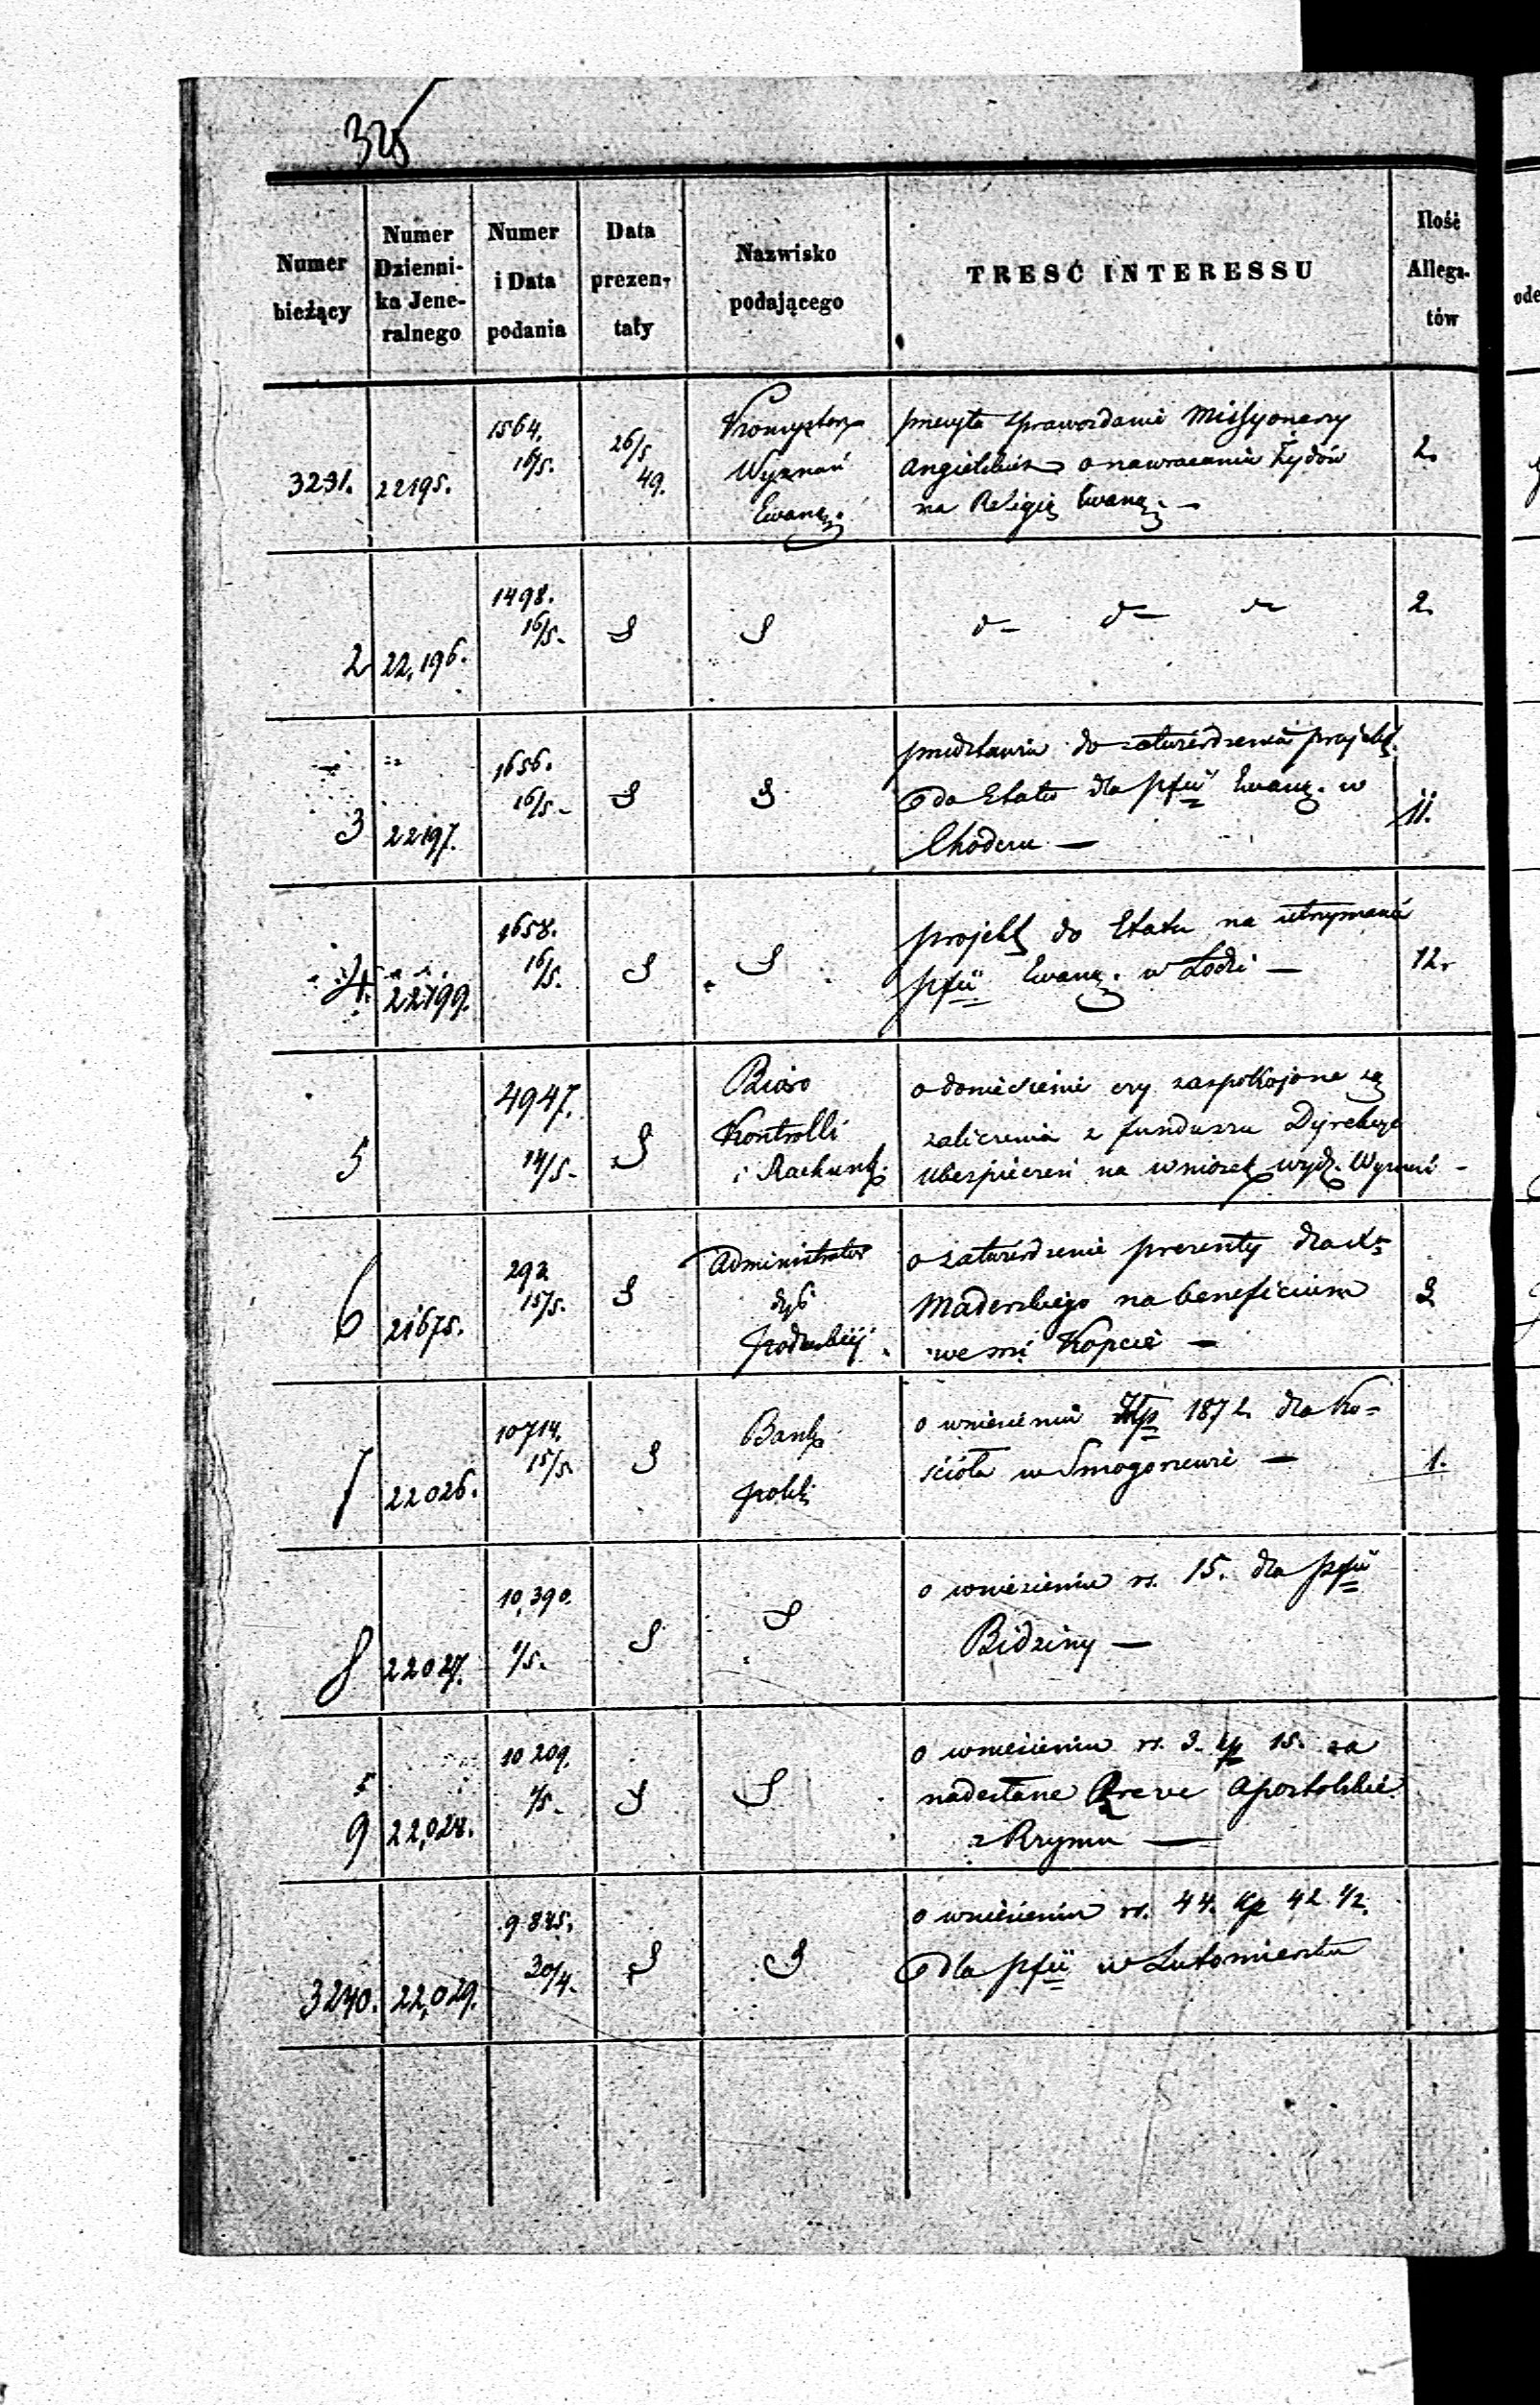 325
Numer bieżący | Numer Dzienni- ka Jene- ralnego | Numer i Data podania | Data prezen- taty | Nazwisko podającego | TRESĆ INTERESSU | Ilość Allega- tów
3231. | 22195. | 1564. 16/5. | 26/5 49. | Wyznań Ewang. | przesyła sprawozdanie Missyonarzy
Angielskich o nawracaniu Żydów | 2.
na Religię Ewang. —
2 | 22,196. | 1498. 16/5. | d | d | d— d— d— | 2.
3 | 22197. | 1656. 16/5. | d | d | przedstawia do zatwierdzenia projekt
do Etatu dla pfii Ewang. w | 11.
Chodczu —
4. | 22199. | 1658. 16/5. | d | d | projekt do Etatu na utrzymanie
pfii Ewang. w Łodzi — | 12.
5 | 4947. 14/5. | d | Biuro Kontrolli i Rachunk. | o doniesienie czy zaspokojone są
zaliczenia z funduszu Dyrekcyi
Ubezpieczeń na wniosek wydz. Wyznań —
6 | 21675. | 292 15/5. | d | Administrator dyć. podlaskiej | o zatwierdzenie prezenty dla Xa
Maderskiego na beneficium
we wsi Kopcie —
7 | 22026. | 10714. 15/5. | d | Bank polski | o wniesieniu Złp 1872. dla Ko-
ścioła w Smogorzewie — | 1.
8 | 22027. | 10,390. /5. | d | d | o wniesieniu rs. 15. dla pfii
Bidziny —
9 | 22,028. | 10209. /5. | d | d | o wniesieniu rs. 3. kp 15. za
nadesłane Breve Apostolskie
z Rzymu —
3240. | 22,029. | 30/4. | d | d | o wniesieniu rs. 44. kp 42 1/2.
dla pfii w Lutomiersku